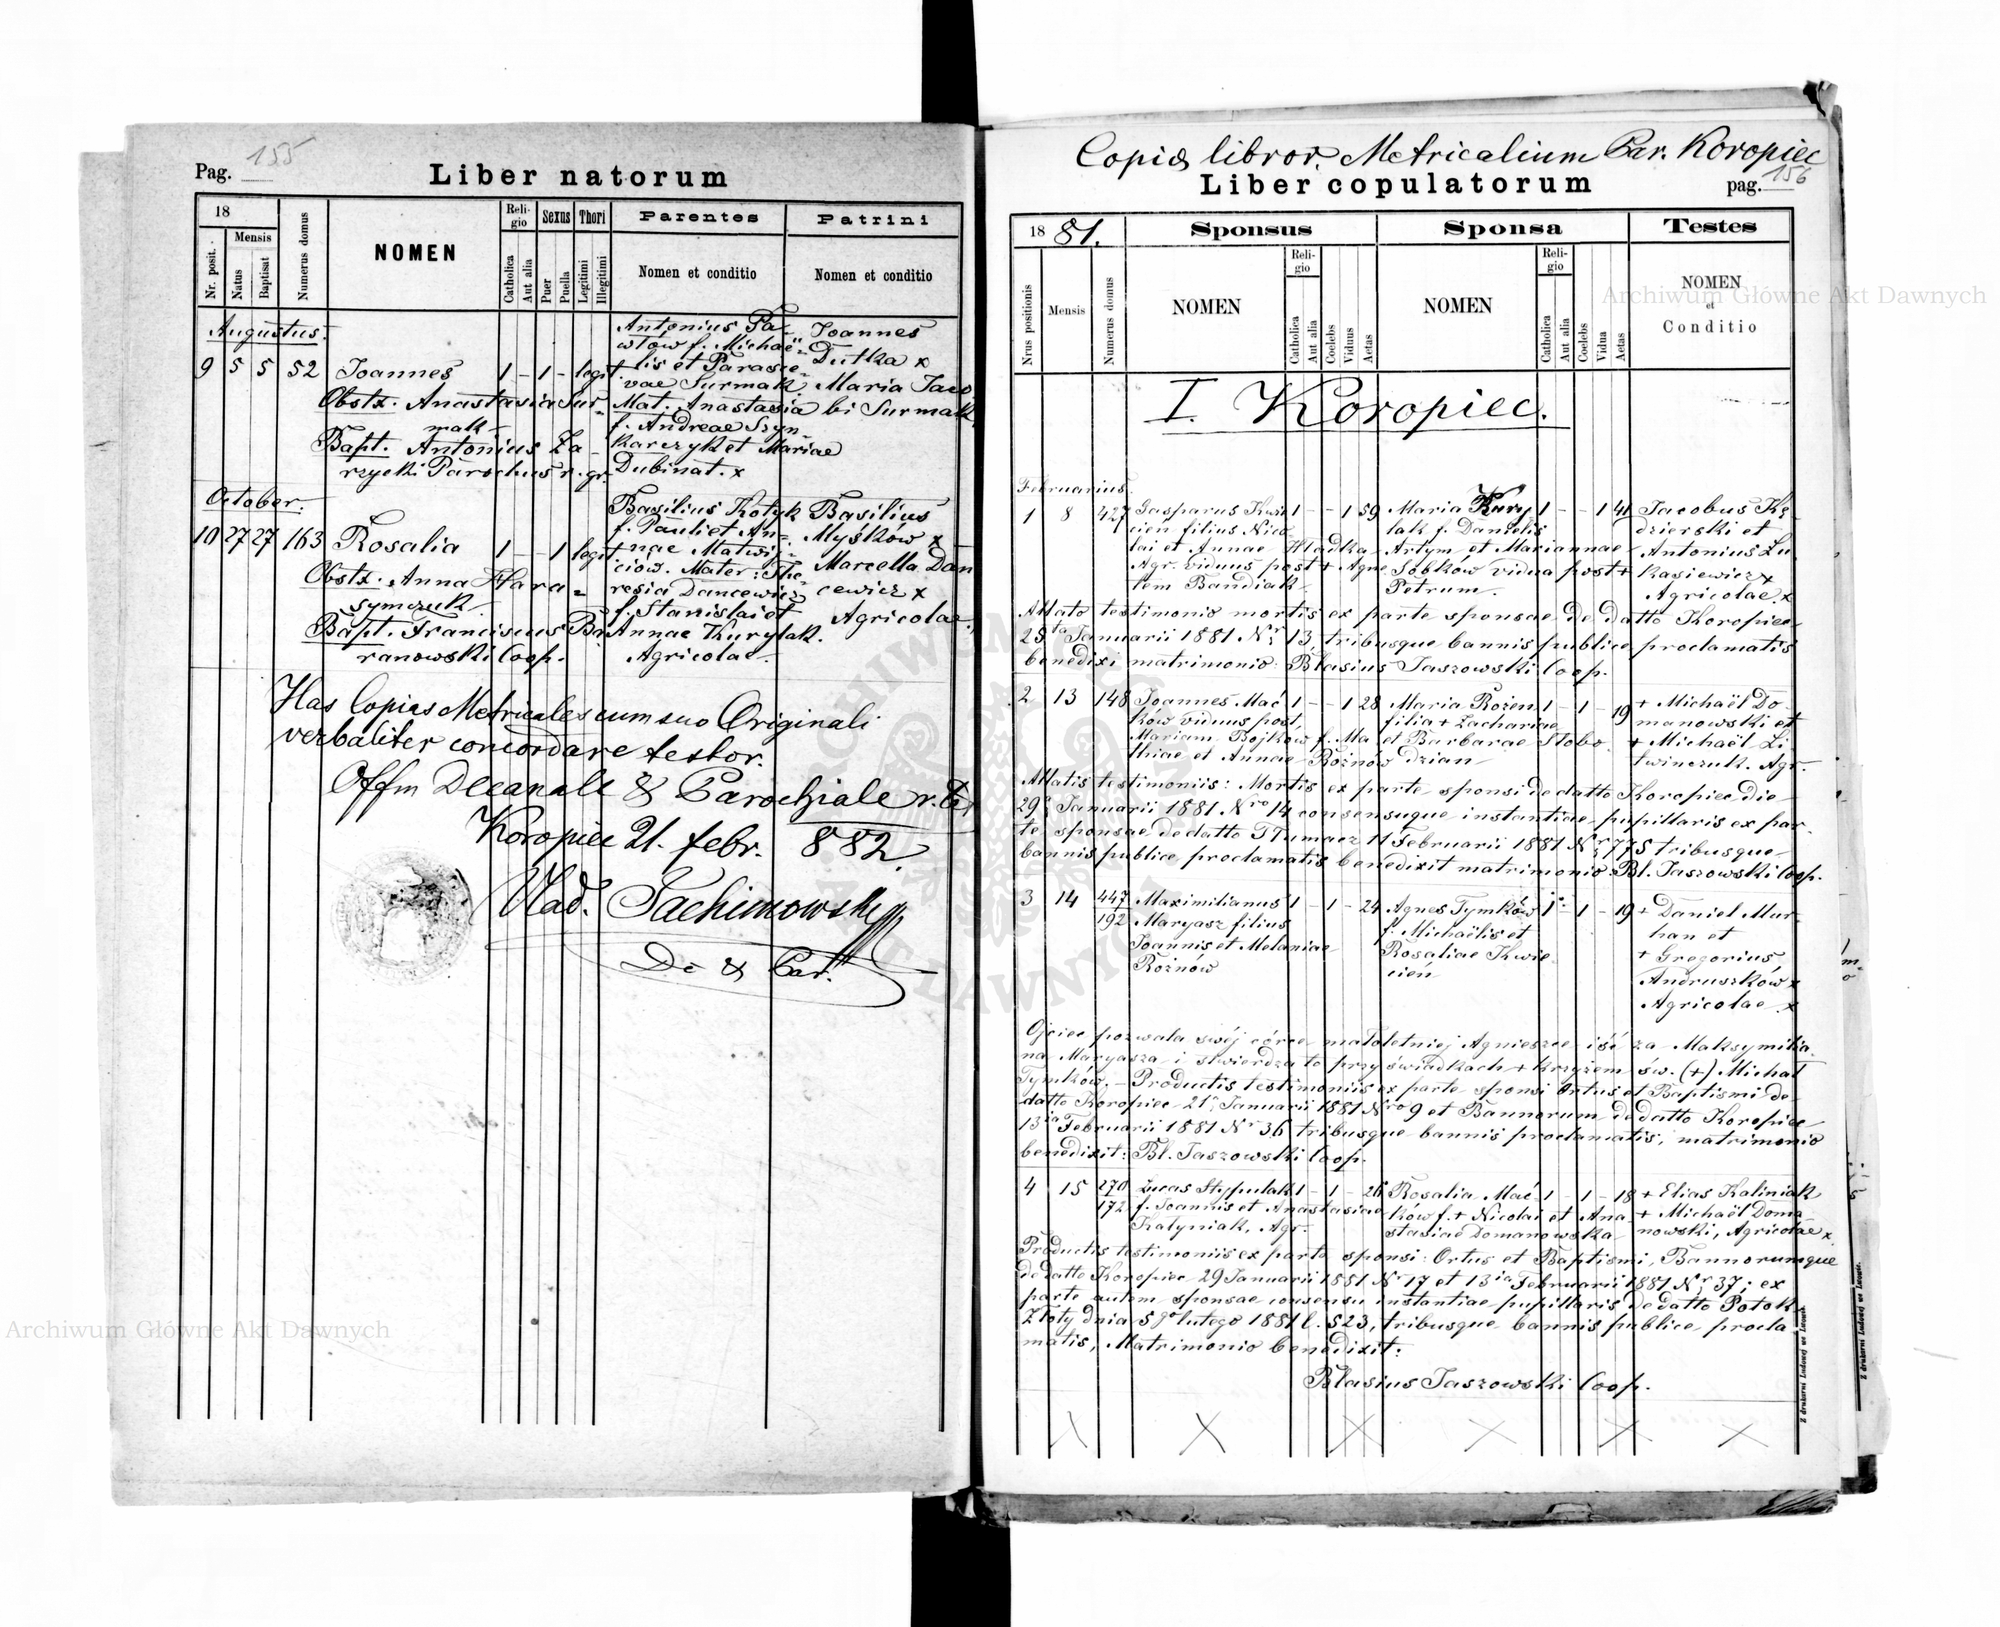 Pag. 155
Liber natorum
18
Nr. posit.
Mensis
Natus
Baptisat
Numerus domus
NOMEN
Religio
Catholica
Aut alia
Sexus
Puer
Puella
Thori
Legitimi
Illegitimi
Parentes
Nomen et conditio
Patrini
Nomen et conditio
Augustus.
9 5 5 52 Joannes 1 - 1 - legit
Obstx. Anastasia Sur-
mak
Bapt. Antonius Za-
rzycki Parochus r. gr.
Antonius Pa-
wlow f. Michaë-
lis et Parasce-
vae Surmak.
Mat. Anastasia
f. Andreae Szyn
karczyk et Mariae
Dubinat. x
Joannes
Dutka x
Maria Jaco
bi Surmak
October.
10 27 27 163 Rosalia 1 - - 1 legit
Obstx. Anna Hara-
symczuk
Bapt. Franciscus Ba
ranowski Coop.
Basilius Kotyk
f. Pauli et An-
nae Matwij-
ciów. Mater: The-
resia Dancewicz
f. Stanislai et
Annae Kurylak.
Agricolae
Basilius
Myśków x
Marcella Dan
cewicz x
Agricolae
Has Copias Metricales cum suo Originali
verbaliter concordare testor.
Offm Decanale & Parochiale r. l.
Koropiec 21. febr. 882
Vlad. Jachimowski
De & Par.
Copia libror. Metricalium Par. Koropiec
Liber copulatorum
pag. 156
18 81.
Nrus positionis
Mensis
Numerus domus
Sponsus
NOMEN
Religio
Catholica
Aut alia
Coelebs
Viduus
Aetas
Sponsa
NOMEN
Religio
Catholica
Aut alia
Coelebs
Vidua
Aetas
Testes
NOMEN
et
Conditio
I. Koropiec.
Februarius
1 8 427 Gasparus Kwie 1 - - 1 59 Maria Kury 1 - - 1 41 Jacobus Kę-
cień filius Nico- lak f. Danielis dzierski et
lai et Annae Hładka Artym et Mariannae Antonius Łu
Agr. viduus post + Agne Sobków vidua post + kasiewicz x
tem Bandiak Petrum. Agricolae x
Allato testimonio mortis ex parte sponsae de datto Koropiec
28ta Januarii 1881 Nr 13, tribusque bannis publice proclamatis
benedixi matrimonio: Blasius Jaszowski Coop.
2 13 148 Joannes Mać 1 - - 1 28 Maria Rożen 1 - 1 - 19 + Michaël Do-
ków viduus post filia + Zachariae manowski et
Mariam Bojków f. Ma et Barbarae Słobo + Michaël Li-
thiae et Annae Rożnów dzian twinczuk. Agr.
Allatis testimoniis: Mortis ex parte sponsi de datto Koropiec die
29a Januarii 1881 Nro 14 consensuque instantiae pupillaris ex par-
te sponsae de datto Tłumacz 11 Februarii 1881 Nr 775 tribusque
bannis publice proclamatis benedixit matrimonio: Bl. Jaszowski Coop.
3 14 447 Maximilianus 1 - 1 - 24 Agnes Tymków 1 - 1 - 19 + Daniel Mur-
192 Maryasz filius f. Michaëlis et han et
Joannis et Melaniae Rosaliae Kwie- + Gregorius
Rożnów cień Andruszków x
Agricolae x
Ojciec pozwala swój córce małoletniej Agnieszce iść za Maksymilia-
na Maryasza i stwierdza to przy świadkach + krzyżem św. (+) Michał
Tymków. - Productis testimoniis ex parte sponsi Ortus et Baptismi de
datto Koropiec 21 Januarii 1881 Nro 9 et Bannorum de datto Koropiec
13ia Februarii 1881 Nr 36 tribusque bannis proclamatis, matrimonio
benedixit: Bl. Jaszowski Coop.
4 15 270 Lucas Stypulak 1 - 1 - 26 Rosalia Mać 1 - 1 - 18 + Elias Kaliniak
172 f. Joannis et Anastasiae ków f. + Nicolai et Ana- + Michaël Doma
Kałyniak, Agr. stasiae Domanowska nowski, Agricolae x
Productis testimoniis ex parte sponsi: Ortus et Baptismi, Bannorumque
de datto Koropiec 29 Januarii 1881 Nr 17 et 13ia Februarii 1881 Nr 37; ex
parte autem sponsae consensu instantiae pupillaris de datto Potok
Złoty dnia 5go lutego 1881 l. 523, tribusque bannis publice procla
matis, Matrimonio benedixit:
Blasius Jaszowski Coop.
Z drukarni Ludowej we Lwowie.
Z drukarni Ludowej we Lwowie.
Archiwum Główne Akt Dawnych
Archiwum Główne Akt Dawnych
ARCHIWUM GŁÓWNE AKT DAWNYCH